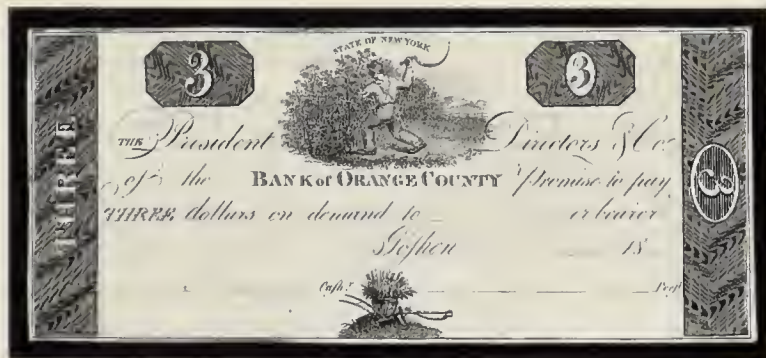 STATE OF NEW YORK
3
3
THREE
THE President Directors & Co.
of the BANK of ORANGE COUNTY Promise to pay
THREE dollars on demand to or bearer
Goshen 18
Cash.r Pres.t
3